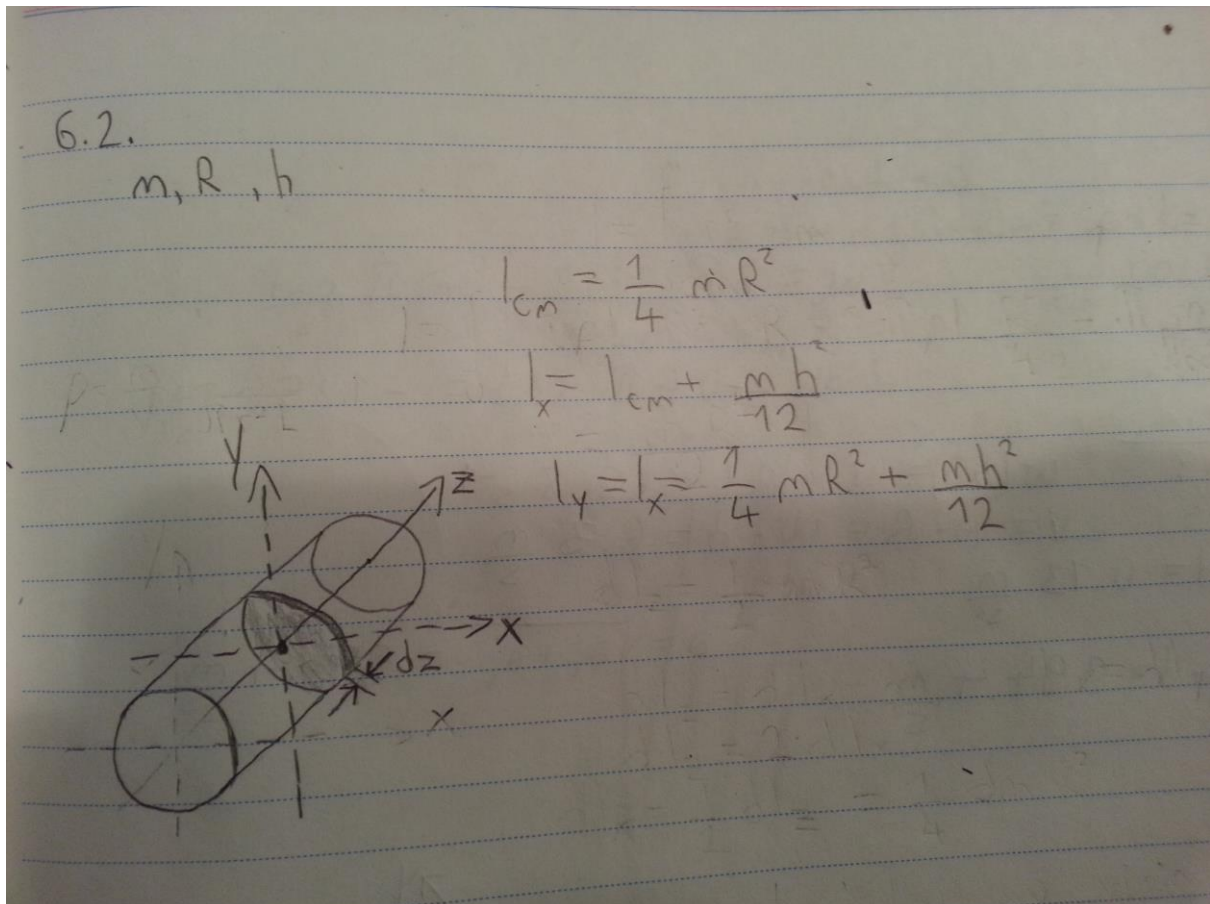 6.2.
m, R, h
I_cm = 1/4 m R²
I_x = I_cm + m h²/12
I_y = I_x = 1/4 m R² + m h²/12
y
z
x
dz
x